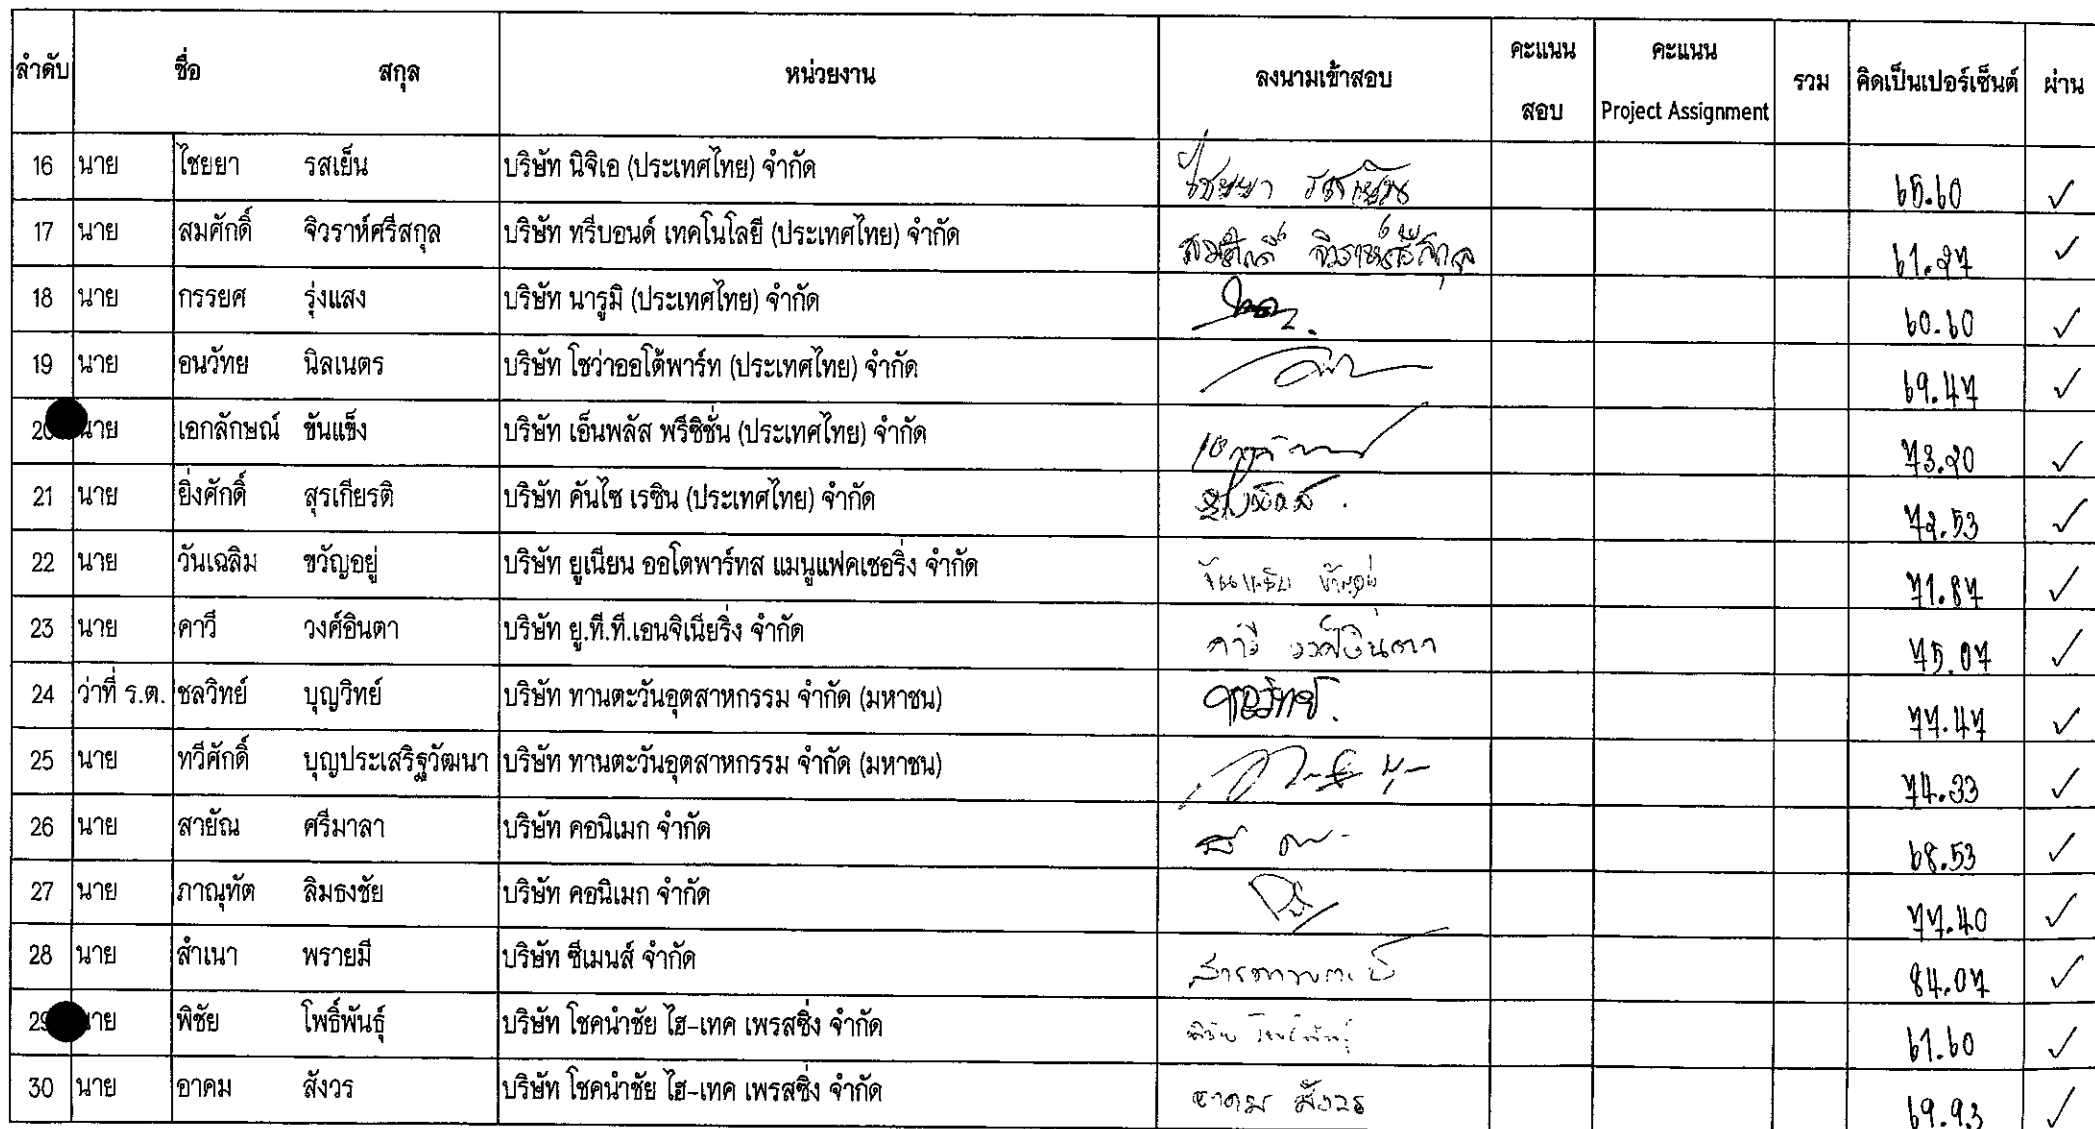 ลำดับ ชื่อ สกุล หน่วยงาน ลงนามเข้าสอบ คะแนน สอบ คะแนน Project Assignment รวม คิดเป็นเปอร์เซ็นต์ ผ่าน
16 นาย ไชยยา รสเย็น บริษัท นิจิเอ (ประเทศไทย) จำกัด ไชยยา รสเย็น 65.60 ✓
17 นาย สมศักดิ์ จิวราห์ศรีสกุล บริษัท ทรีบอนด์ เทคโนโลยี (ประเทศไทย) จำกัด สมศักดิ์ จิวราห์ศรีสกุล 61.27 ✓
18 นาย กรรยศ รุ่งแสง บริษัท นารูมิ (ประเทศไทย) จำกัด 60.60 ✓
19 นาย อนวัทย นิลเนตร บริษัท โชว่าออโต้พาร์ท (ประเทศไทย) จำกัด 69.47 ✓
20 นาย เอกลักษณ์ ขันแข็ง บริษัท เอ็นพลัส พรีซิชั่น (ประเทศไทย) จำกัด 73.20 ✓
21 นาย ยิ่งศักดิ์ สุรเกียรติ บริษัท คันไซ เรซิน (ประเทศไทย) จำกัด 72.53 ✓
22 นาย วันเฉลิม ขวัญอยู่ บริษัท ยูเนียน ออโตพาร์ทส แมนูแฟคเชอริ่ง จำกัด วันเฉลิม ขวัญอยู่ 71.87 ✓
23 นาย คาวี วงศ์อินตา บริษัท ยู.ที.ที.เอนจิเนียริ่ง จำกัด คาวี วงศ์อินตา 75.07 ✓
24 ว่าที่ ร.ต. ชลวิทย์ บุญวิทย์ บริษัท ทานตะวันอุตสาหกรรม จำกัด (มหาชน) ชลวิทย์ 77.47 ✓
25 นาย ทวีศักดิ์ บุญประเสริฐวัฒนา บริษัท ทานตะวันอุตสาหกรรม จำกัด (มหาชน) 74.33 ✓
26 นาย สายัณ ศรีมาลา บริษัท คอนิเมก จำกัด 68.53 ✓
27 นาย ภาณุทัต ลิมธงชัย บริษัท คอนิเมก จำกัด 77.40 ✓
28 นาย สำเนา พรายมี บริษัท ซีเมนส์ จำกัด 84.07 ✓
29 นาย พิชัย โพธิ์พันธุ์ บริษัท โชคนำชัย ไฮ-เทค เพรสซิ่ง จำกัด พิชัย โพธิ์พันธุ์ 61.60 ✓
30 นาย อาคม สังวร บริษัท โชคนำชัย ไฮ-เทค เพรสซิ่ง จำกัด อาคม สังวร 69.93 ✓